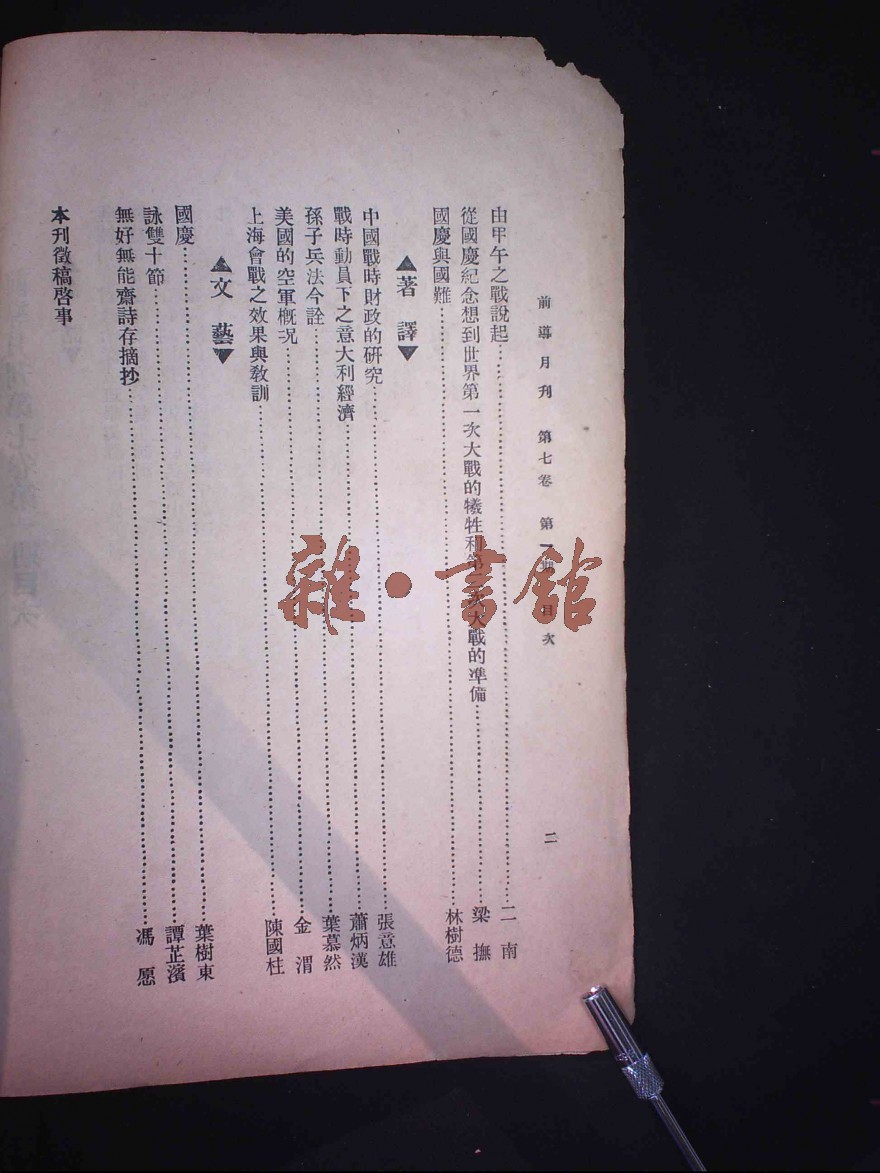 前導月刊 第七卷 第一期 目次 二
由甲午之戰說起 二南
從國慶紀念想到世界第一次大戰的犧牲和第二次大戰的準備 梁撫
國慶與國難 林樹德
▲著譯▼
中國戰時財政的研究 張意雄
戰時動員下之意大利經濟 蕭炳漢
孫子兵法今詮 葉慕然
美國的空軍概況 金渭
上海會戰之效果與教訓 陳國柱
▲文藝▼
國慶 葉樹東
詠雙十節 譚芷濱
無好無能齋詩存摘抄 馮愿
本刊徵稿啓事
雜·書館